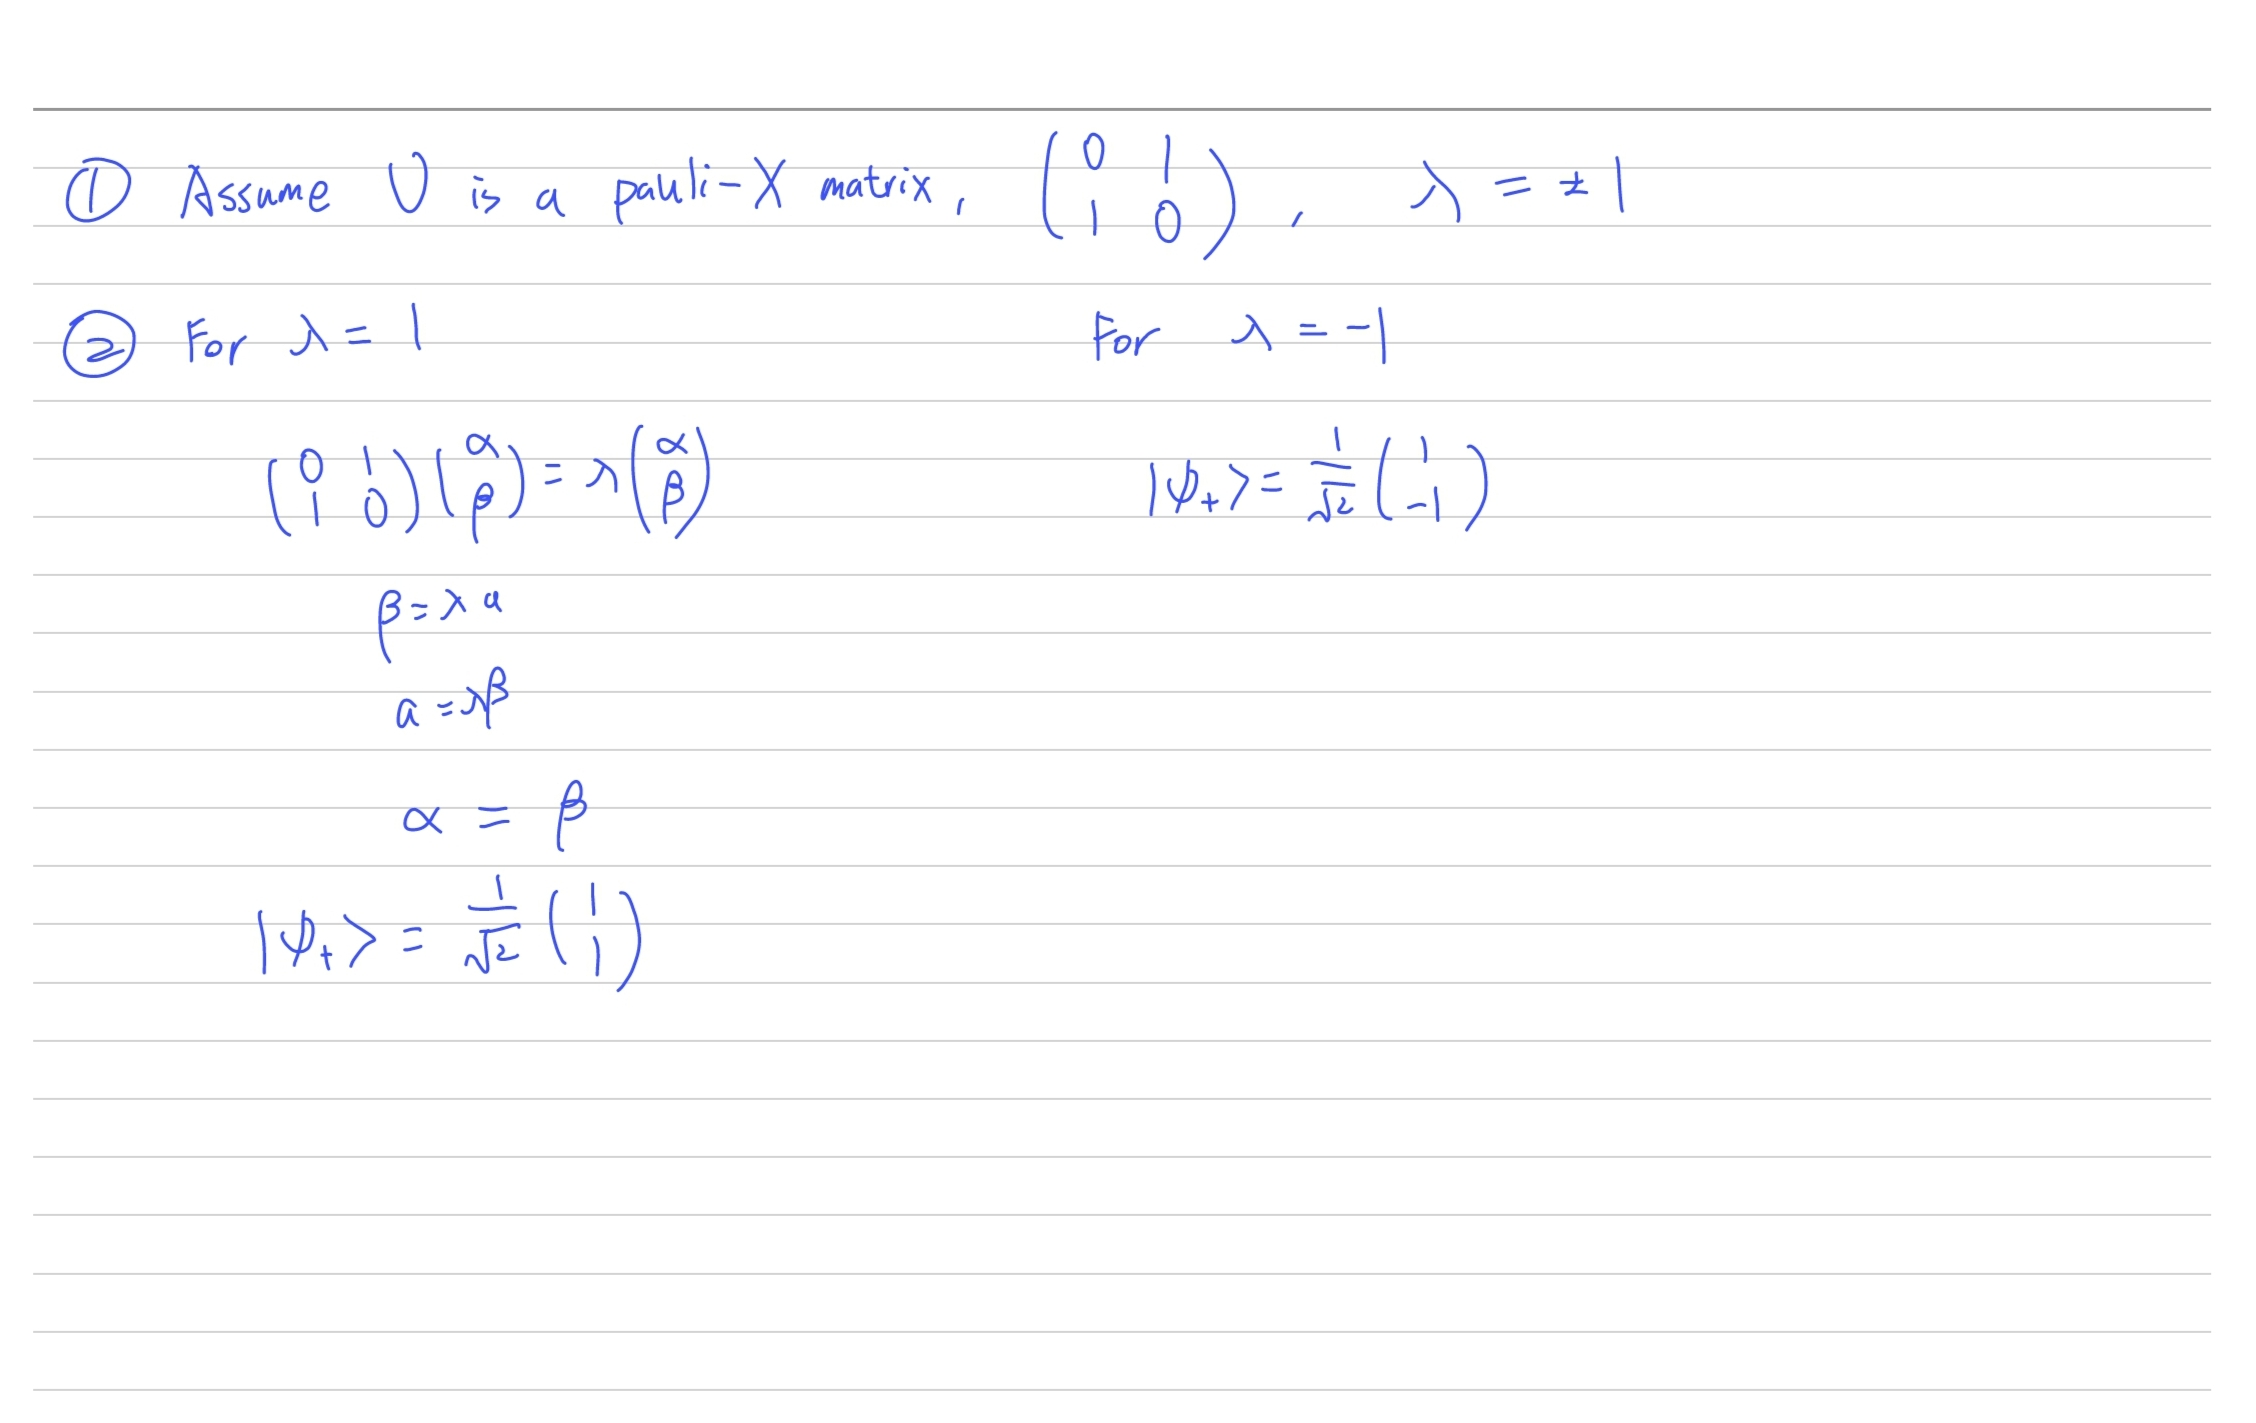 ① Assume U is a pauli-X matrix, (0 1 / 1 0), λ = ±1
② For λ = 1
(0 1 / 1 0)(α / β) = λ(α / β)
β = λa
a = λβ
α = β
|ψ₊> = 1/√2 (1 / 1)
For λ = -1
|ψ₊> = 1/√2 (1 / -1)